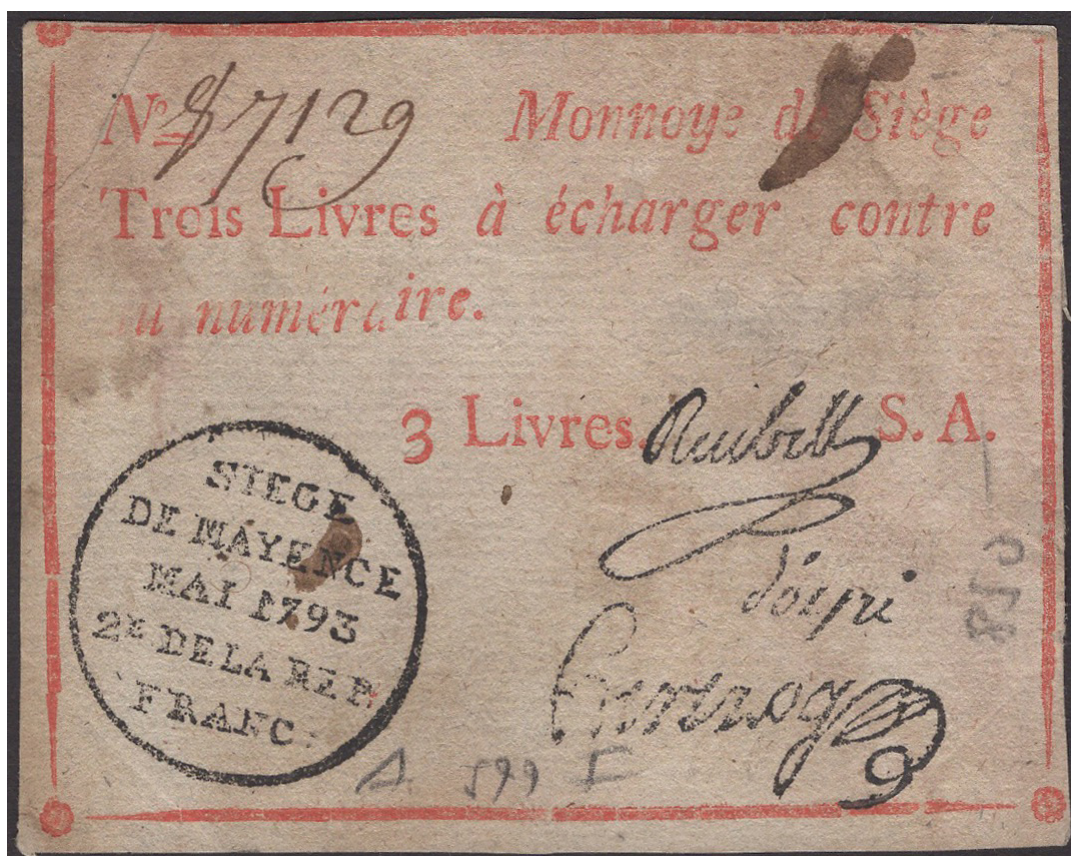 Nº 87129 Monnoye de Siège
Trois Livres à écharger contre
du numéraire.
3 Livres. S. A.
Reubell
SIEGE
DE MAYENCE
MAI 1793
2E DE LA REP
FRANC.
A 599